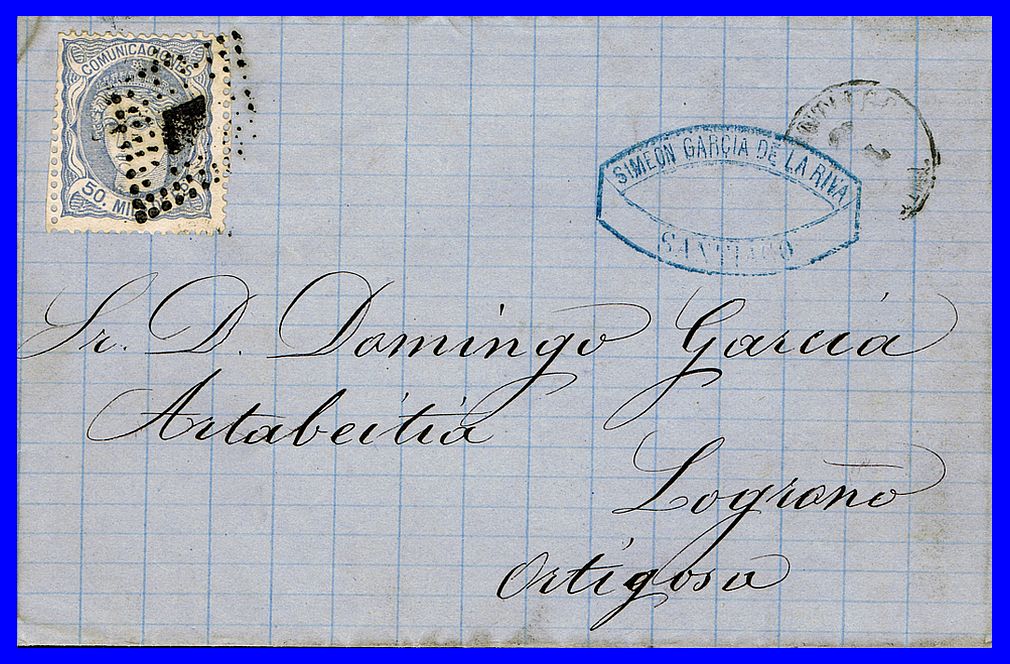 COMUNICACIONES
50. MIL
SIMEON GARCIA DE LA RIVA
SANTIAGO
Sr. D. Domingo García
Artabeitia
Logroño
Ortigosa